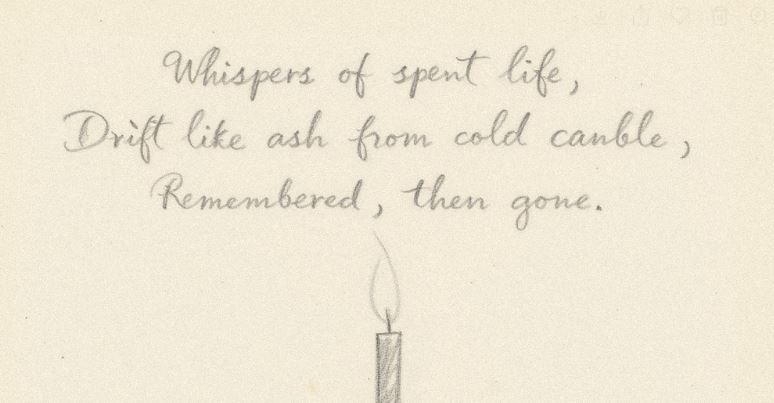 Whispers of spent life,
Drift like ash from cold canble,
Remembered, then gone.